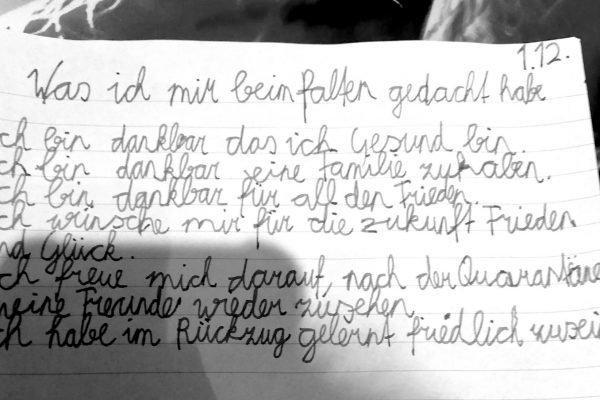 1.12.
Was ich mir beim falten gedacht habe
ch bin dankbar das ich Gesund bin.
ch bin dankbar eine Familie zu haben.
ch bin dankbar für all den Frieden.
ch wünsche mir für die zukunft Frieden
nd Glück.
ch freue mich darauf, nach der Quarantäne
meine Freunde wieder zusehen.
ch habe im Rückzug gelernt friedlich zusein